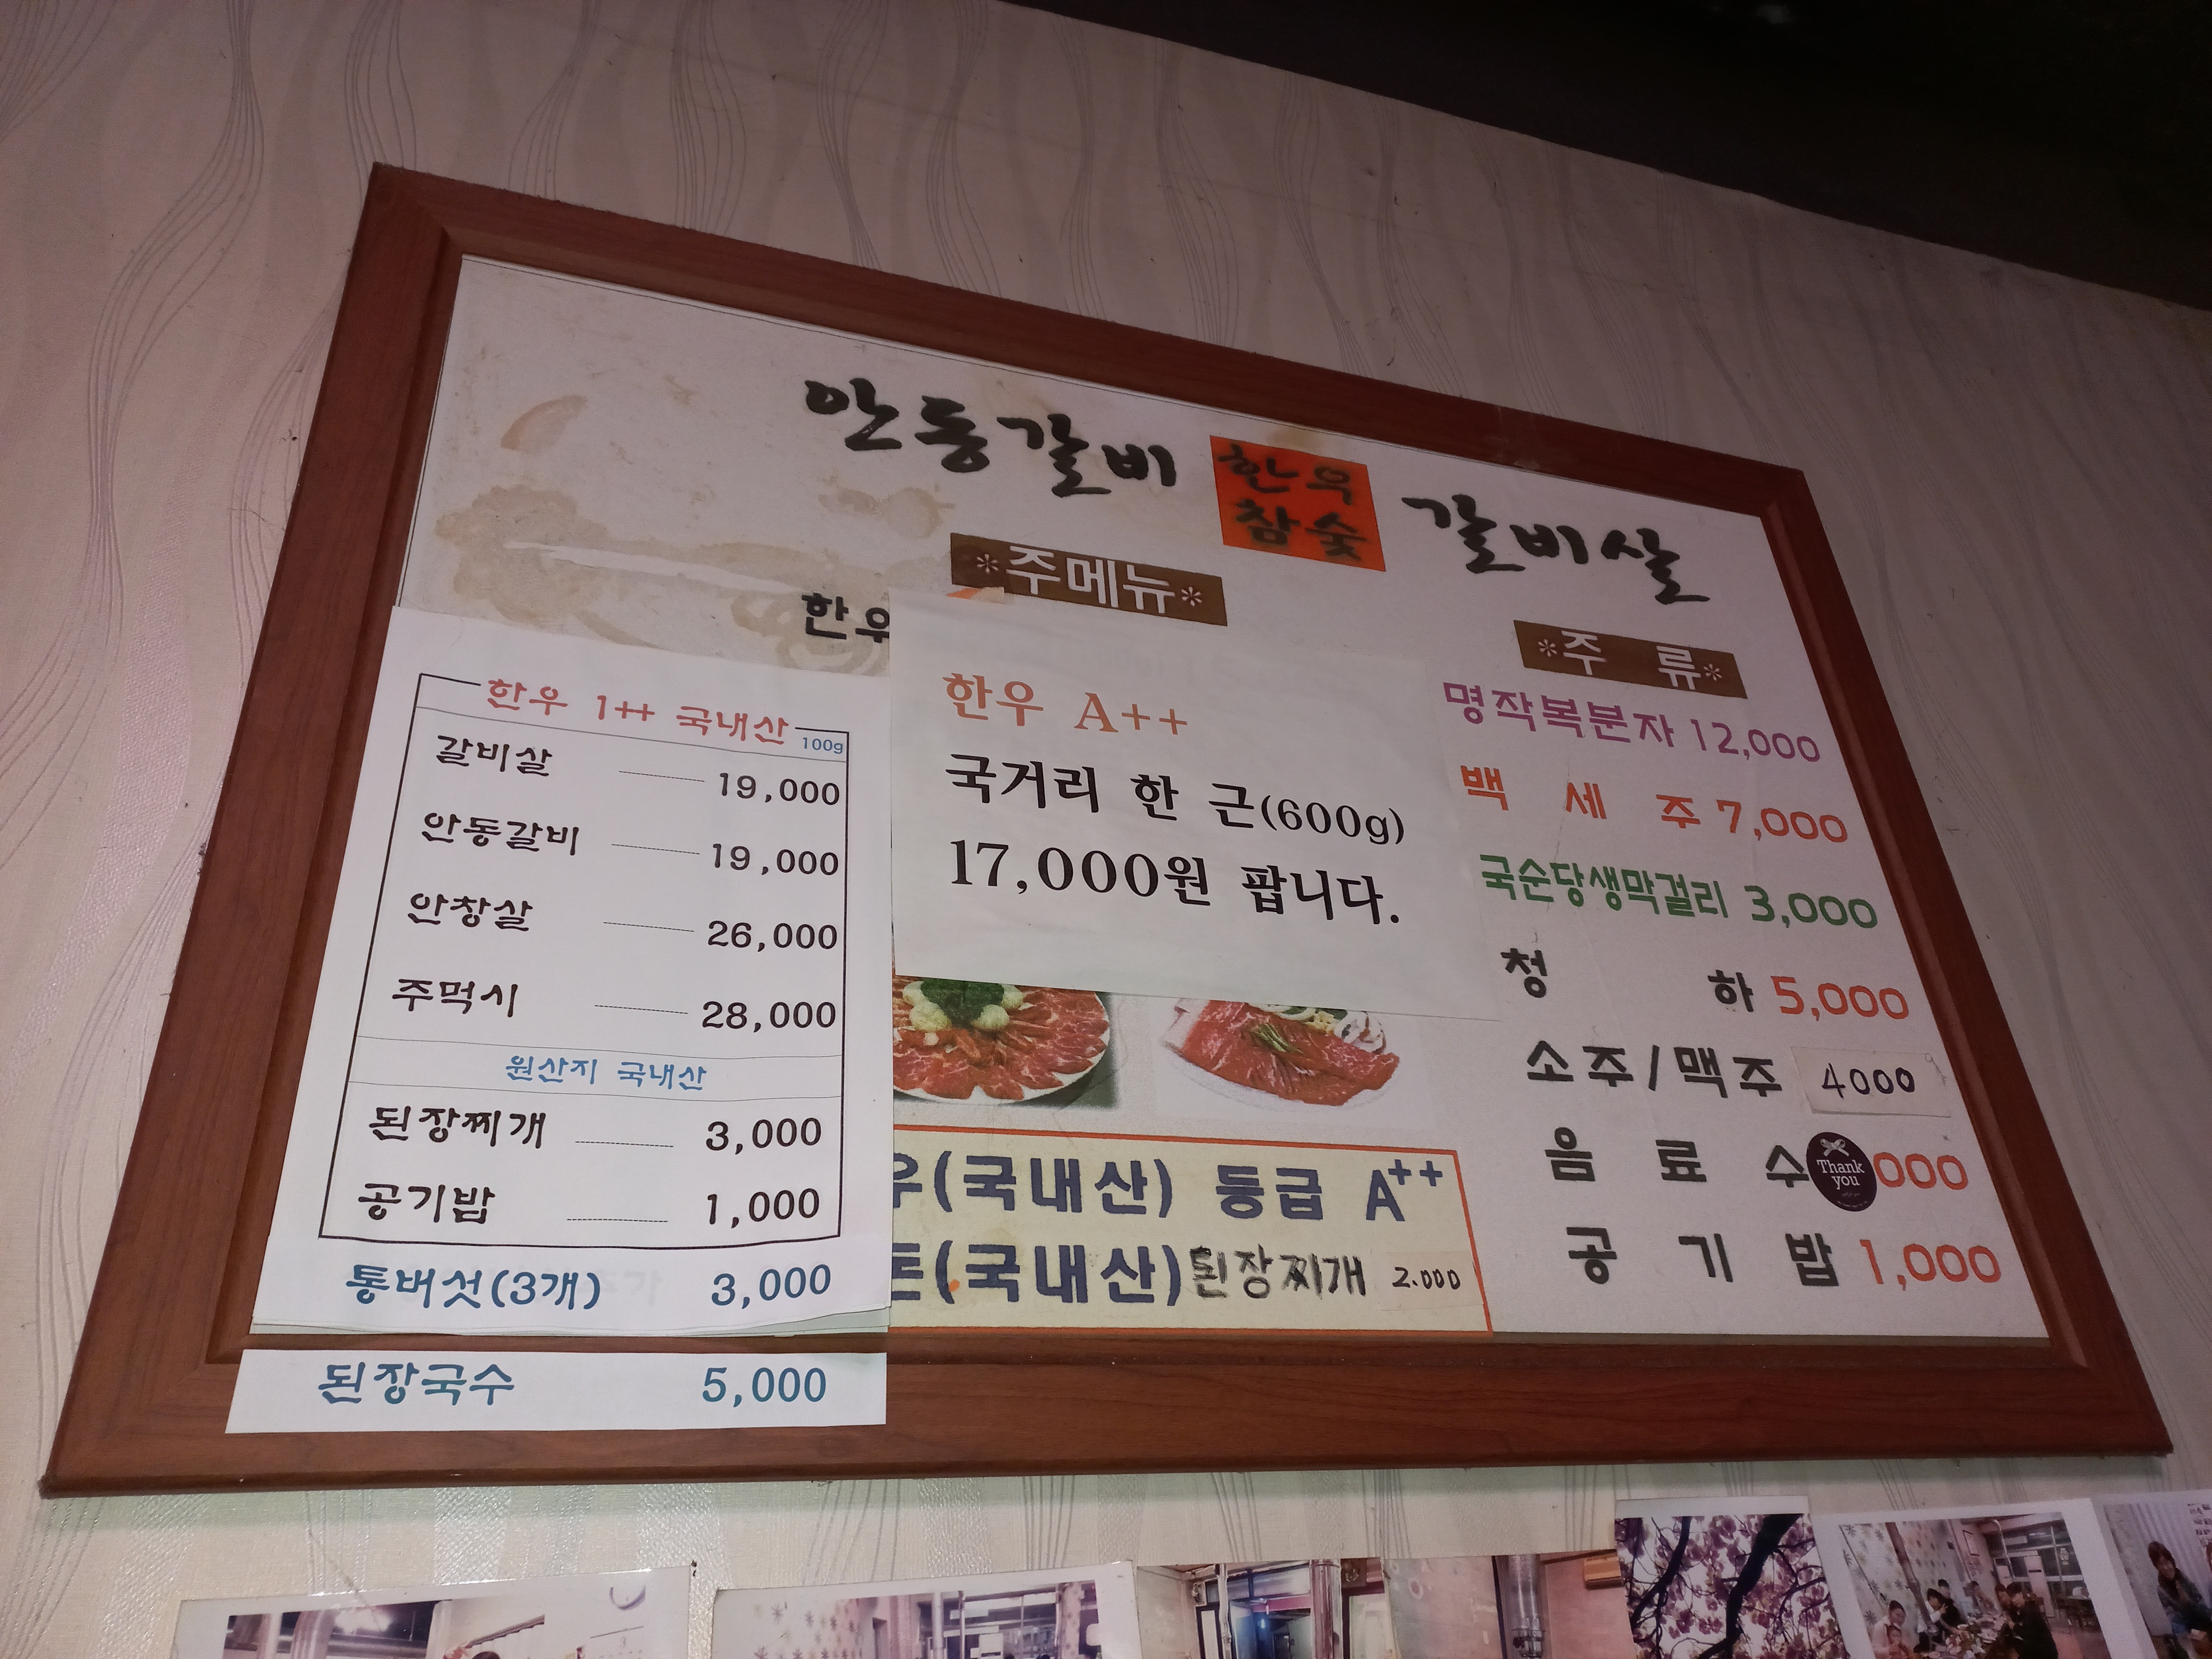 안동갈비 한우 참숯 갈비살
*주메뉴*
한우
한우 1++ 국내산 100g
갈비살 19,000
안동갈비 19,000
안창살 26,000
주먹시 28,000
원산지 국내산
된장찌개 3,000
공기밥 1,000
통버섯(3개) 3,000
된장국수 5,000
한우 A++
국거리 한 근(600g)
17,000원 팝니다.
우(국내산) 등급 A++
(국내산) 된장찌개 2.000
*주 류*
명작복분자 12,000
백 세 주 7,000
국순당생막걸리 3,000
청 하 5,000
소주/맥주 4000
음 료 수 000
Thank you
공 기 밥 1,000